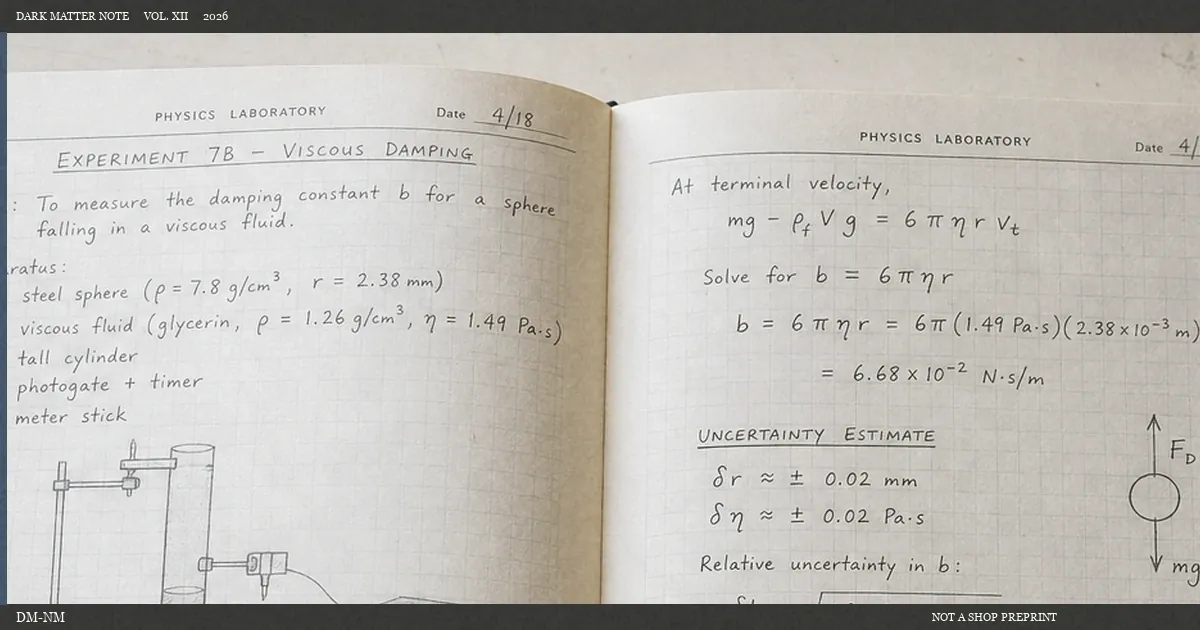 DARK MATTER NOTE VOL. XII 2026
PHYSICS LABORATORY Date 4/18
EXPERIMENT 7B – VISCOUS DAMPING
: To measure the damping constant b for a sphere
falling in a viscous fluid.
ratus:
steel sphere (ρ = 7.8 g/cm³, r = 2.38 mm)
viscous fluid (glycerin, ρ = 1.26 g/cm³, η = 1.49 Pa·s)
tall cylinder
photogate + timer
meter stick
PHYSICS LABORATORY Date 4/
At terminal velocity,
mg – ρ_f V g = 6 π η r v_t
Solve for b = 6 π η r
b = 6 π η r = 6π (1.49 Pa·s)(2.38 × 10⁻³ m)
= 6.68 × 10⁻² N·s/m
UNCERTAINTY ESTIMATE
δr ≈ ± 0.02 mm
δη ≈ ± 0.02 Pa·s
Relative uncertainty in b:
F_D
mg
DM-NM
NOT A SHOP PREPRINT